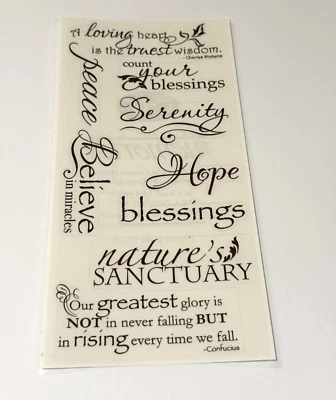 A loving heart
is the truest wisdom.
- Charles Dickens
count
your
blessings
peace
Serenity
Believe
in miracles
Hope
blessings
nature's
SANCTUARY
Our greatest glory is
NOT in never falling BUT
in rising every time we fall.
-Confucius